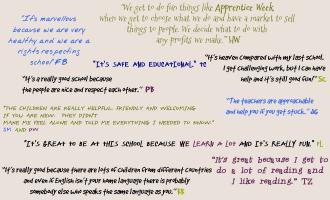 "It's marvellous
because we are very
healthy and we are a
rights respecting
school" FB
"We get to do fun things like Apprentice Week
when we get to choose what we do and have a market to sell
things to people. We decide what to do with
any profits we make." HW
"It's safe and educational." TC
"It's heaven compared with my last school.
I get challenging work, but I can have
help and it's still good fun!" SC
"It's a really good school because
the people are nice and respect each other." PB
"The children are really helpful, friendly and welcoming
if you are new. They didn't
make me feel alone and told me everything I needed to know."
SM and
"The teachers are approachable
and help you if you get stuck." AG
"It's great to be at this school because we learn a lot and it's really fun."
"It's really good because there are lots of children from different countries
and even if English isn't your home language there is probably
somebody else who speaks the same language as you."
"It's great because I get to
do a lot of reading and
I like reading." TZ